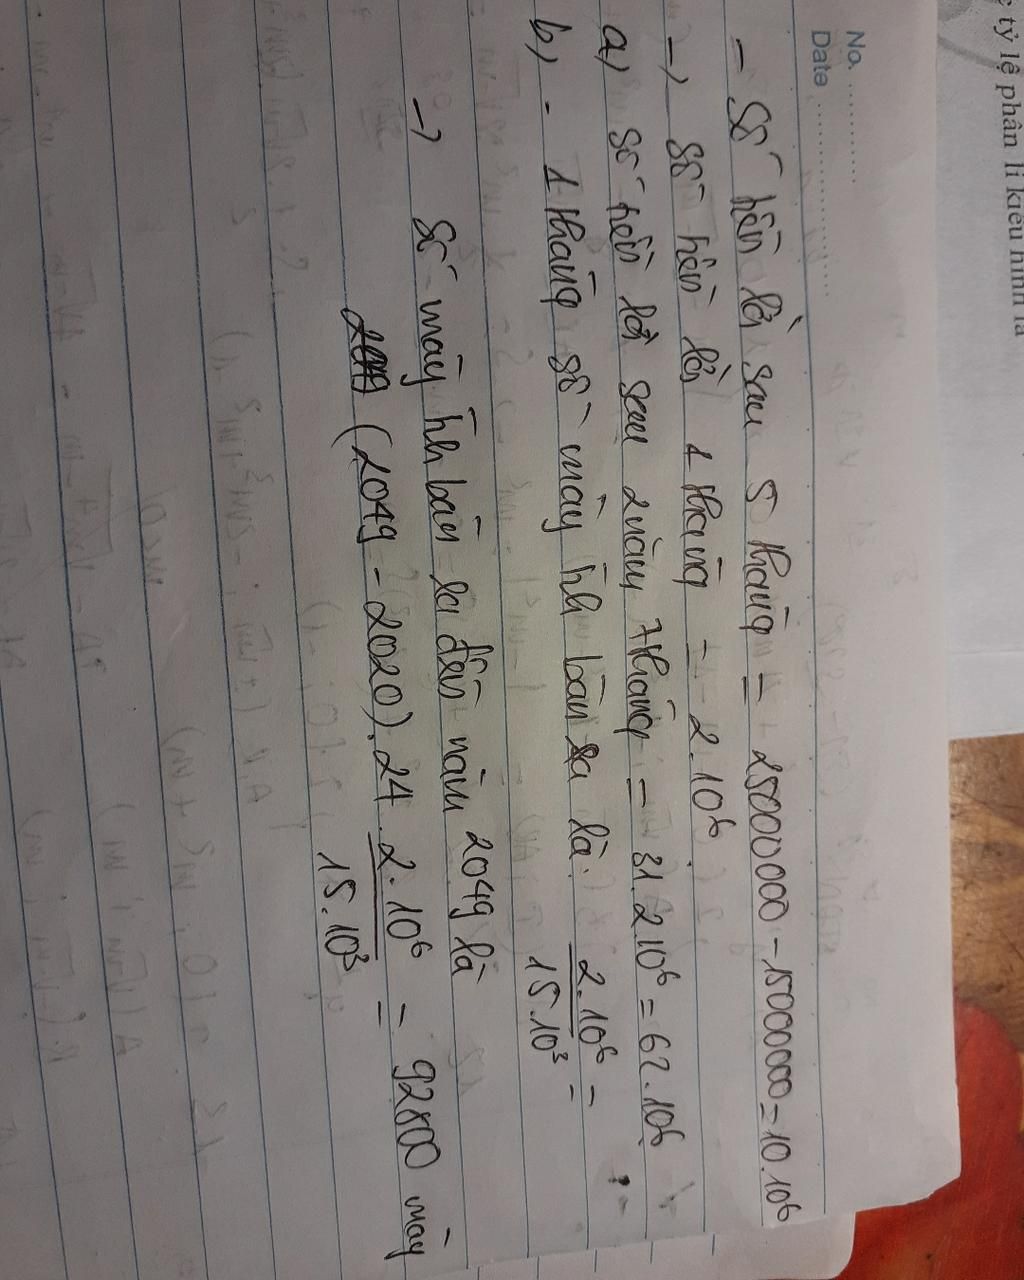 ẹ tỷ lệ phân li kiểu hình là
No. ............
Date ........................
- Số tiền lời sau 5 tháng = 25000000 - 15000000 = 10.10⁶
→ Số tiền lời 1 tháng = 2.10⁶
a) Số tiền lời sau 2 năm 7 tháng = 31.2.10⁶ = 62.10⁶
b) - 1 tháng số máy tính bán ra là: 2.10⁶ / 15.10³ =
→ Số máy tính bán ra đến năm 2049 là
(2049 - 2020).24.2.10⁶ / 15.10³ = 92800 máy